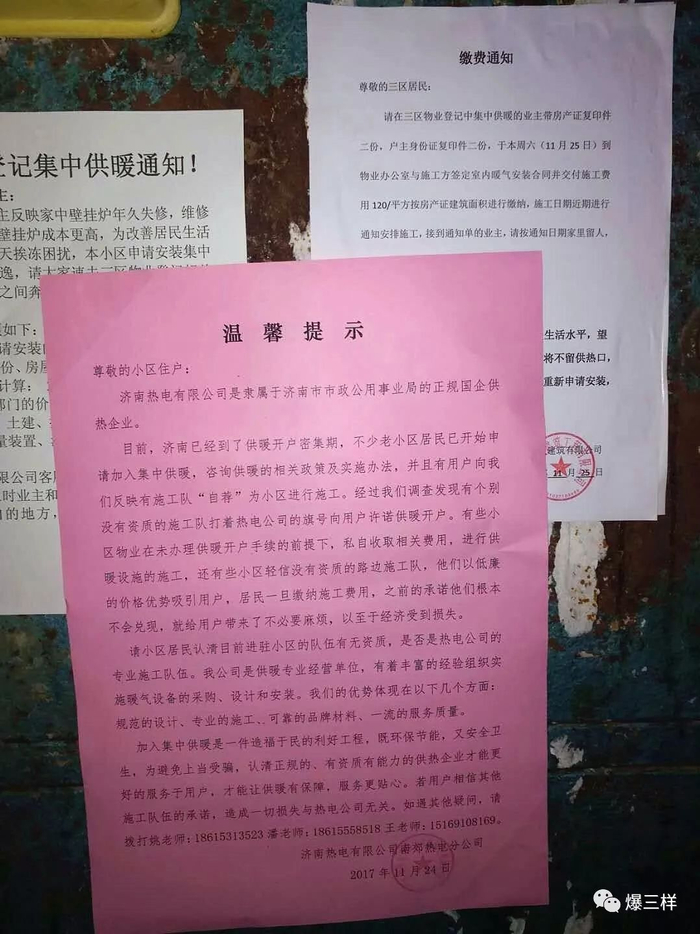 登记集中供暖通知！
主：
主反映家中壁挂炉年久失修，维修
壁挂炉成本更高，为改善居民生活
天挨冻困扰，本小区申请安装集中
之间奔
如下：
请安装
份、房屋
计算：
部门的价
土建、
量装置、
限公司客
时业主和
的地方，
缴费通知
尊敬的三区居民：
请在三区物业登记中集中供暖的业主带房产证复印件
二份，户主身份证复印件二份，于本周六（11月25日）到
物业办公室与施工方签定室内暖气安装合同并交付施工费
用120/平方按房产证建筑面积进行缴纳，施工日期近期进行
通知安排施工，接到通知单的业主，请按通知日期家里留人，
生活水平，望
将不留供热口，
重新申请安装，
建筑有限公司
11月25日
温馨提示
尊敬的小区住户：
济南热电有限公司是隶属于济南市市政公用事业局的正规国企供
热企业。
目前，济南已经到了供暖开户密集期，不少老小区居民已开始申
请加入集中供暖，咨询供暖的相关政策及实施办法，并且有用户向我
们反映有施工队“自荐”为小区进行施工。经过我们调查发现有个别
没有资质的施工队打着热电公司的旗号向用户许诺供暖开户。有些小
区物业在未办理供暖开户手续的前提下，私自收取相关费用，进行供
暖设施的施工，还有些小区轻信没有资质的路边施工队，他们以低廉
的价格优势吸引用户，居民一旦缴纳施工费用，之前的承诺他们根本
不会兑现，就给用户带来了不必要麻烦，以至于经济受到损失。
请小区居民认清目前进驻小区的队伍有无资质，是否是热电公司的
专业施工队伍。我公司是供暖专业经营单位，有着丰富的经验组织实
施暖气设备的采购、设计和安装。我们的优势体现在以下几个方面：
规范的设计、专业的施工、可靠的品牌材料、一流的服务质量。
加入集中供暖是一件造福于民的利好工程，既环保节能，又安全卫
生，为避免上当受骗，认清正规的、有资质有能力的供热企业才能更
好的服务于用户，才能让供暖有保障，服务更贴心。若用户相信其他
施工队伍的承诺，造成一切损失与热电公司无关。如遇其他疑问，请
拨打姚老师：18615313523 潘老师：18615558518 王老师：15169108169。
济南热电有限公司南郊热电分公司
2017年11月24日
爆三样